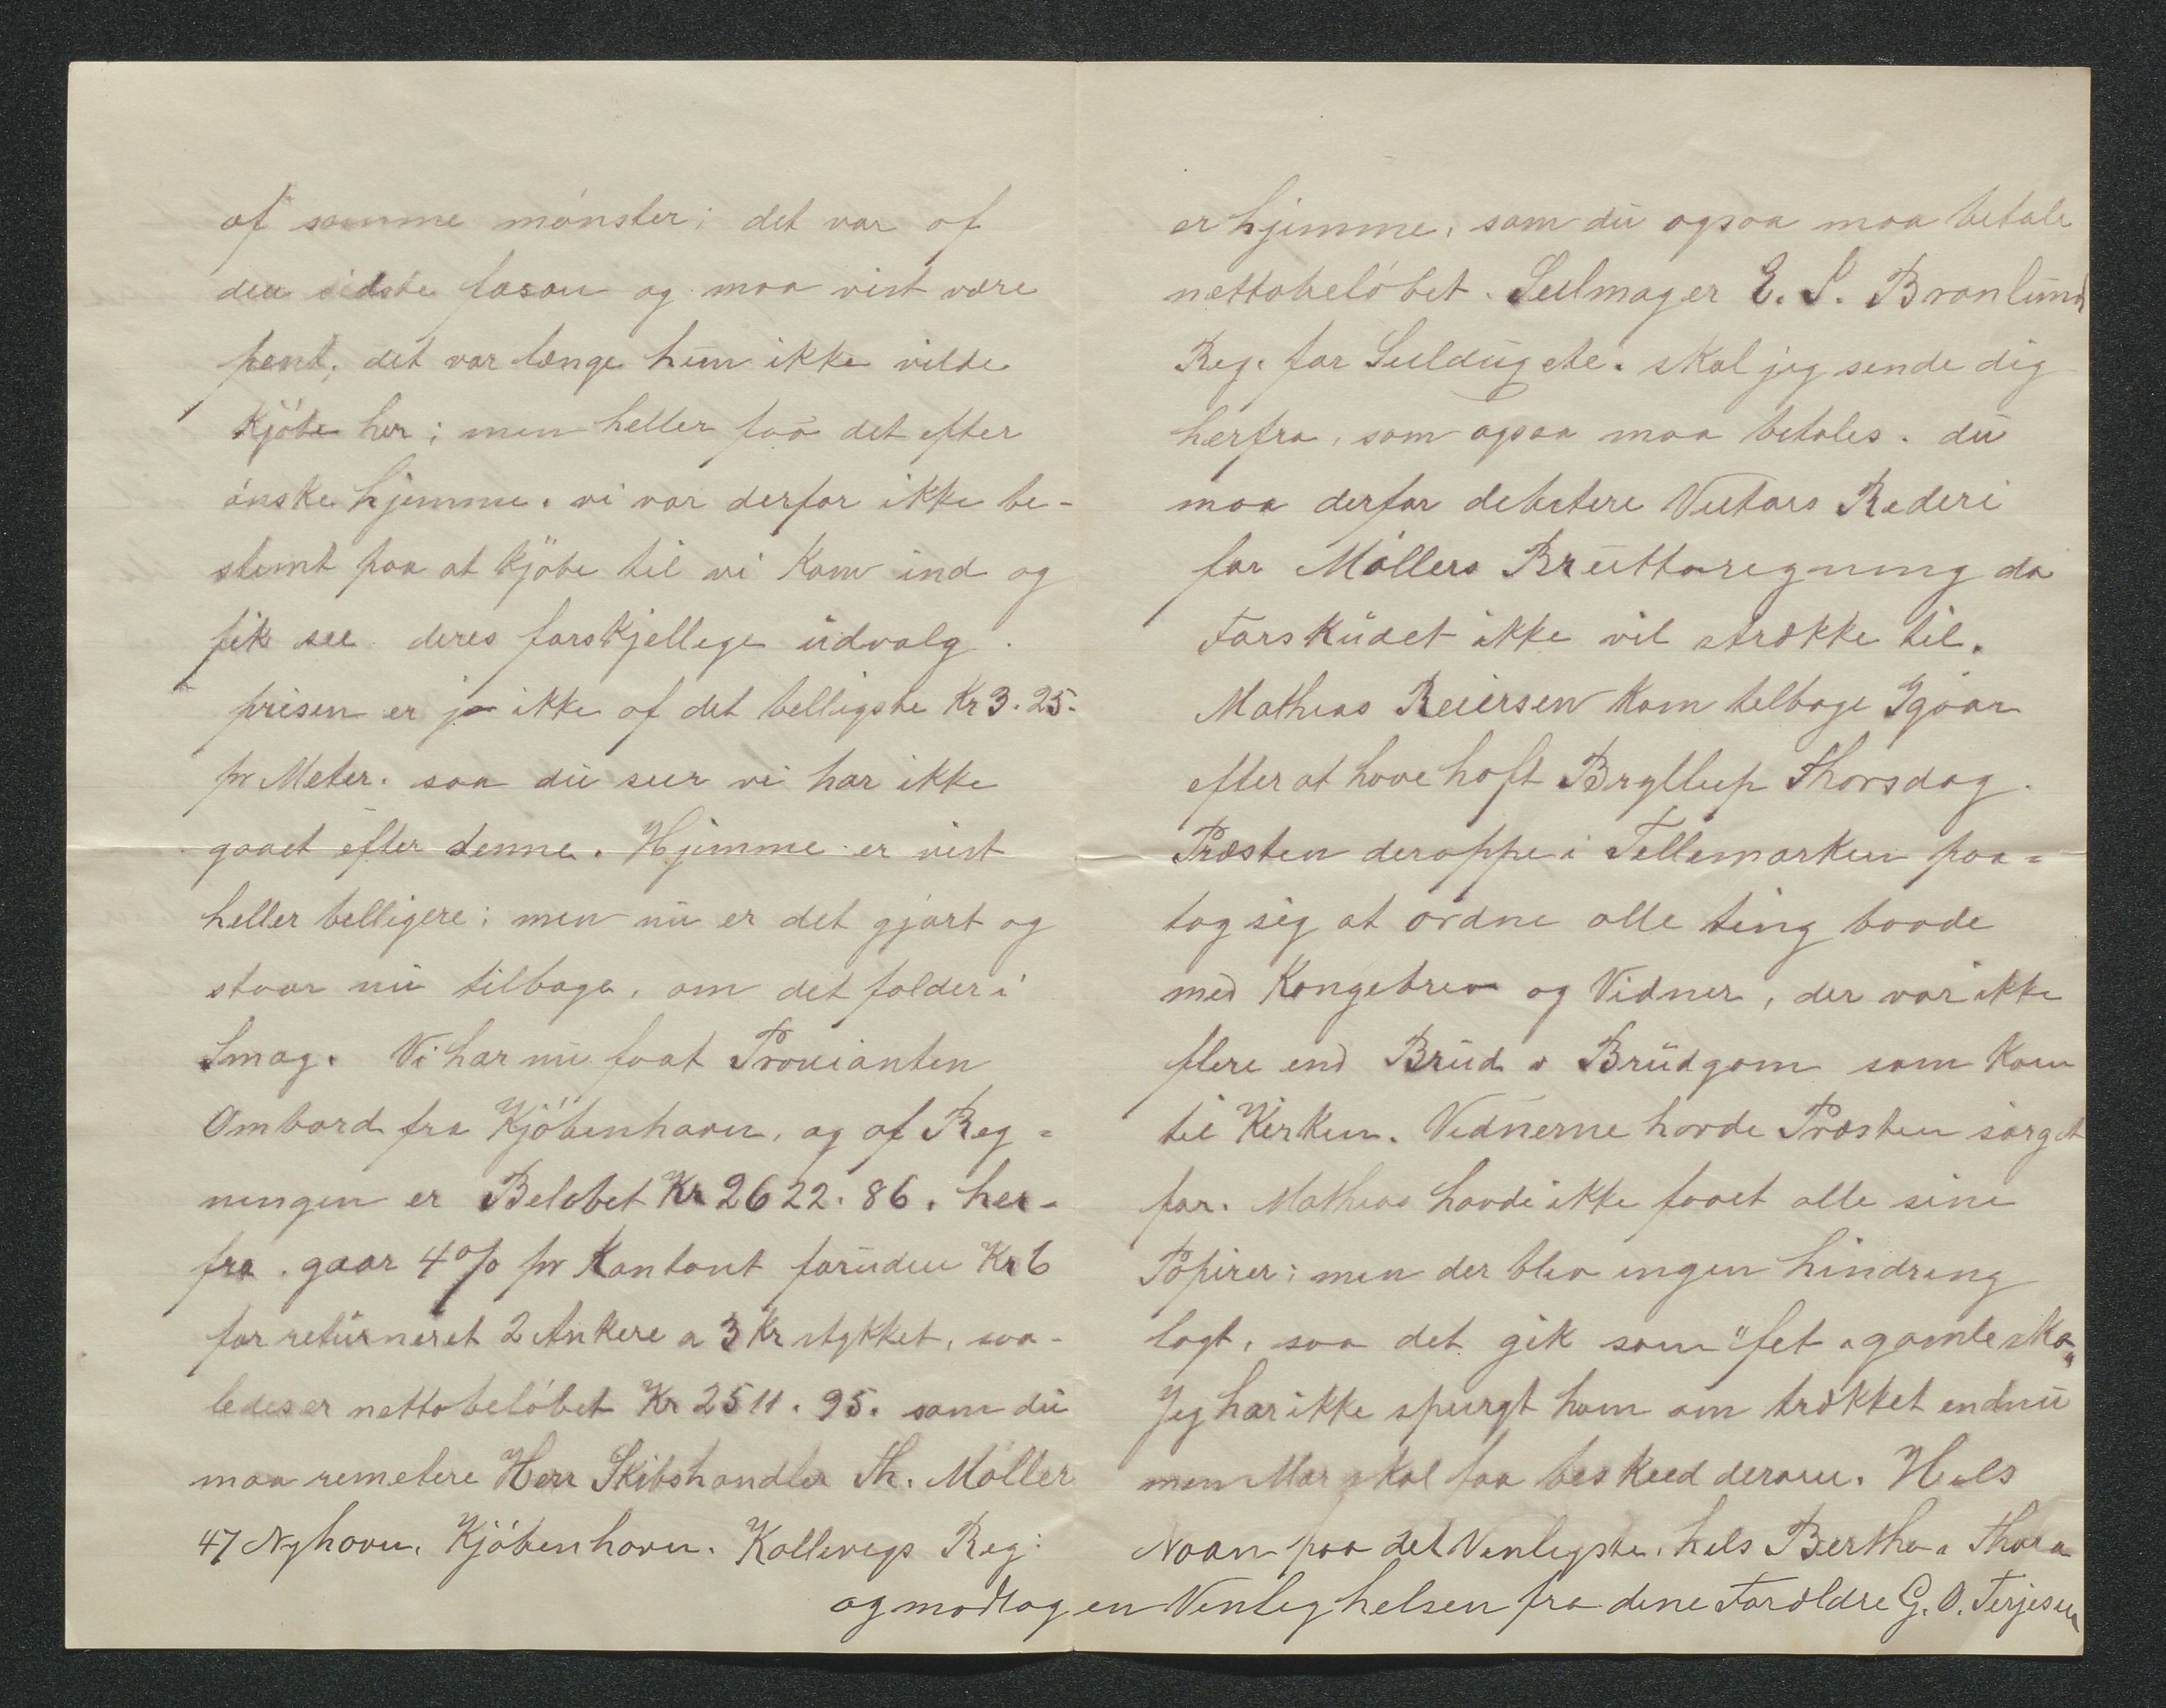 af samme mønster; det var af
den sidste fasøn og maa vist være
pent; det var længe hun ikke vilde
Kjøbe her; men heller faa det efter
ønske hjemme. vi var derfor ikke be-
stemt paa at Kjøbe til vi Kom ind og
fik see deres forskjellige udvalg.
prisen er jo ikke af det belligste Kr 3.25.
pr Meter. saa du seer vi har ikke
gaaet efter denne. Hjemme er vist
heller belligere; men nu er det gjort og
staar nu tilbage, om det falder i
Smag. Vi har nu faat Provianten
Ombord fra Kjøbenhavn, og af Reg=
ningen er Beløbet Kr 2622.86. her-
fra gaar 4% pr Kontant foruden Kr 6
for returneret 2 Ankere a 3 Kr stykket, saa-
ledes er nettobeløbet Kr 2511.95. som du
maa remetere Herr Skibshandler Th. Møller
47 Nyhavn. Kjøbenhavn. Kallevegs Reg:
er hjemme, som du ogsaa maa betale
nettobeløbet. Seilmager E. S. Branlund
Reg. for Seildug etc. skal jeg sende dig
herfra, som ogsaa maa betales. du
maa derfor debetere Rederi
for Møllers Bruttoregning da
Forskudet ikke vil strække til.
Mathias Reiersen Kom telbage Igaar
efter at have haft Bryllup Thorsdag.
Præsten deroppe i Tellemarken paa=
tog sig at ordne alle ting baade
med Kongebrev og Vidner, der var ikke
flere end Brud & Brudgom som Kom
til Kirken. Vidnerne havde Præsten sørget
for. Mathias havde ikke faaet alle sine
Papirer; men der blev ingen hindring
lagt, saa det gik som "fet a gamle sko"
Jeg har ikke spurgt ham om trækket endnu
men Mor skal faa beskeed derom. Hels
Noan paa det Venligste. hels Bertha & Thora
og modtag en Venlig helsen fra dine Forældre G. O. Terjesen